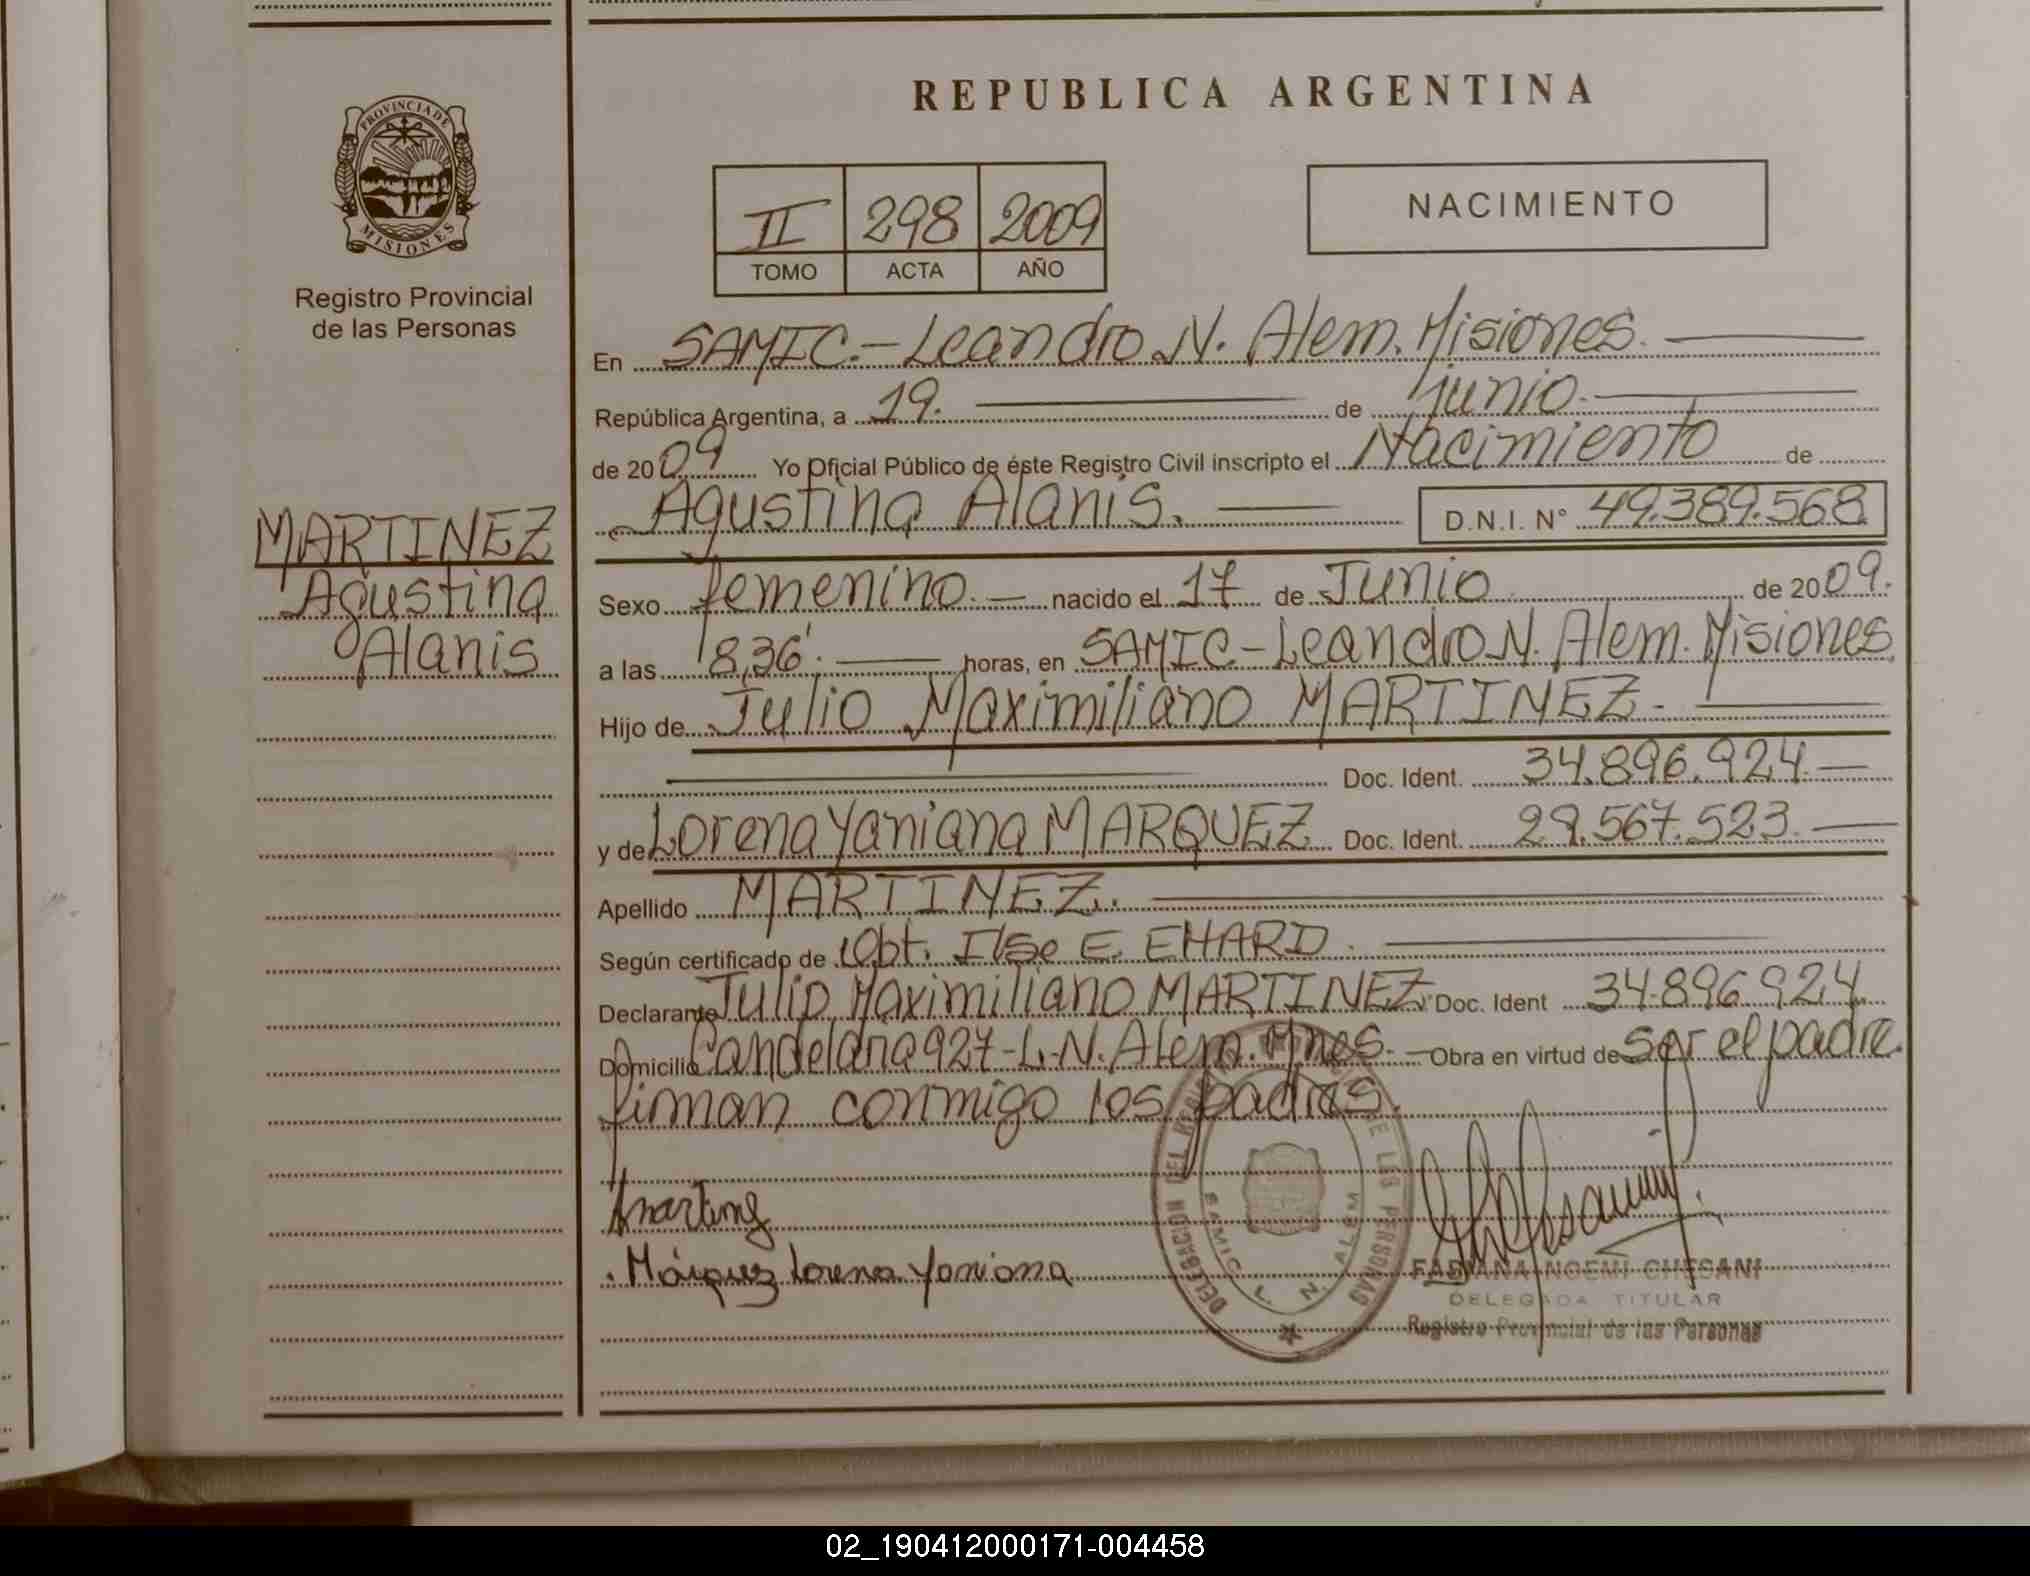 PROVINCIA DE
MISIONES
Registro Provincial
de las Personas
MARTINEZ
Agustina
Alanis
REPUBLICA ARGENTINA
II 298 2009
TOMO ACTA AÑO
NACIMIENTO
En SAMIC.-Leandro N. Alem. Misiones.
República Argentina, a 19. de junio.
de 2009 Yo Oficial Público de éste Registro Civil inscripto el Nacimiento de
Agustina Alanis. D.N.I. N° 49.389.568
Sexo femenino. nacido el 17 de Junio de 2009.
a las 8,36'. horas, en SAMIC-Leandro N. Alem. Misiones
Hijo de Julio Maximiliano MARTINEZ.
Doc. Ident. 34.896.924
y de Lorena Yaniana MARQUEZ Doc. Ident. 29.567.523.
Apellido MARTINEZ.
Según certificado de Obt. Ilse E. EHARD.
Declarante Julio Maximiliano MARTINEZ Doc. Ident 34.896.924
Domicilio Candelaria 927-L.N. Alem. Mnes. Obra en virtud de ser el padre.
firman conmigo los padres.
Márquez Lorena Yaniana
DELEGACION DEL REGISTRO DE LAS PERSONAS
SAMIC L. N. ALEM
FABIANA NOEMI CHESANI
DELEGADA TITULAR
Registro Provincial de las Personas
02_190412000171-004458